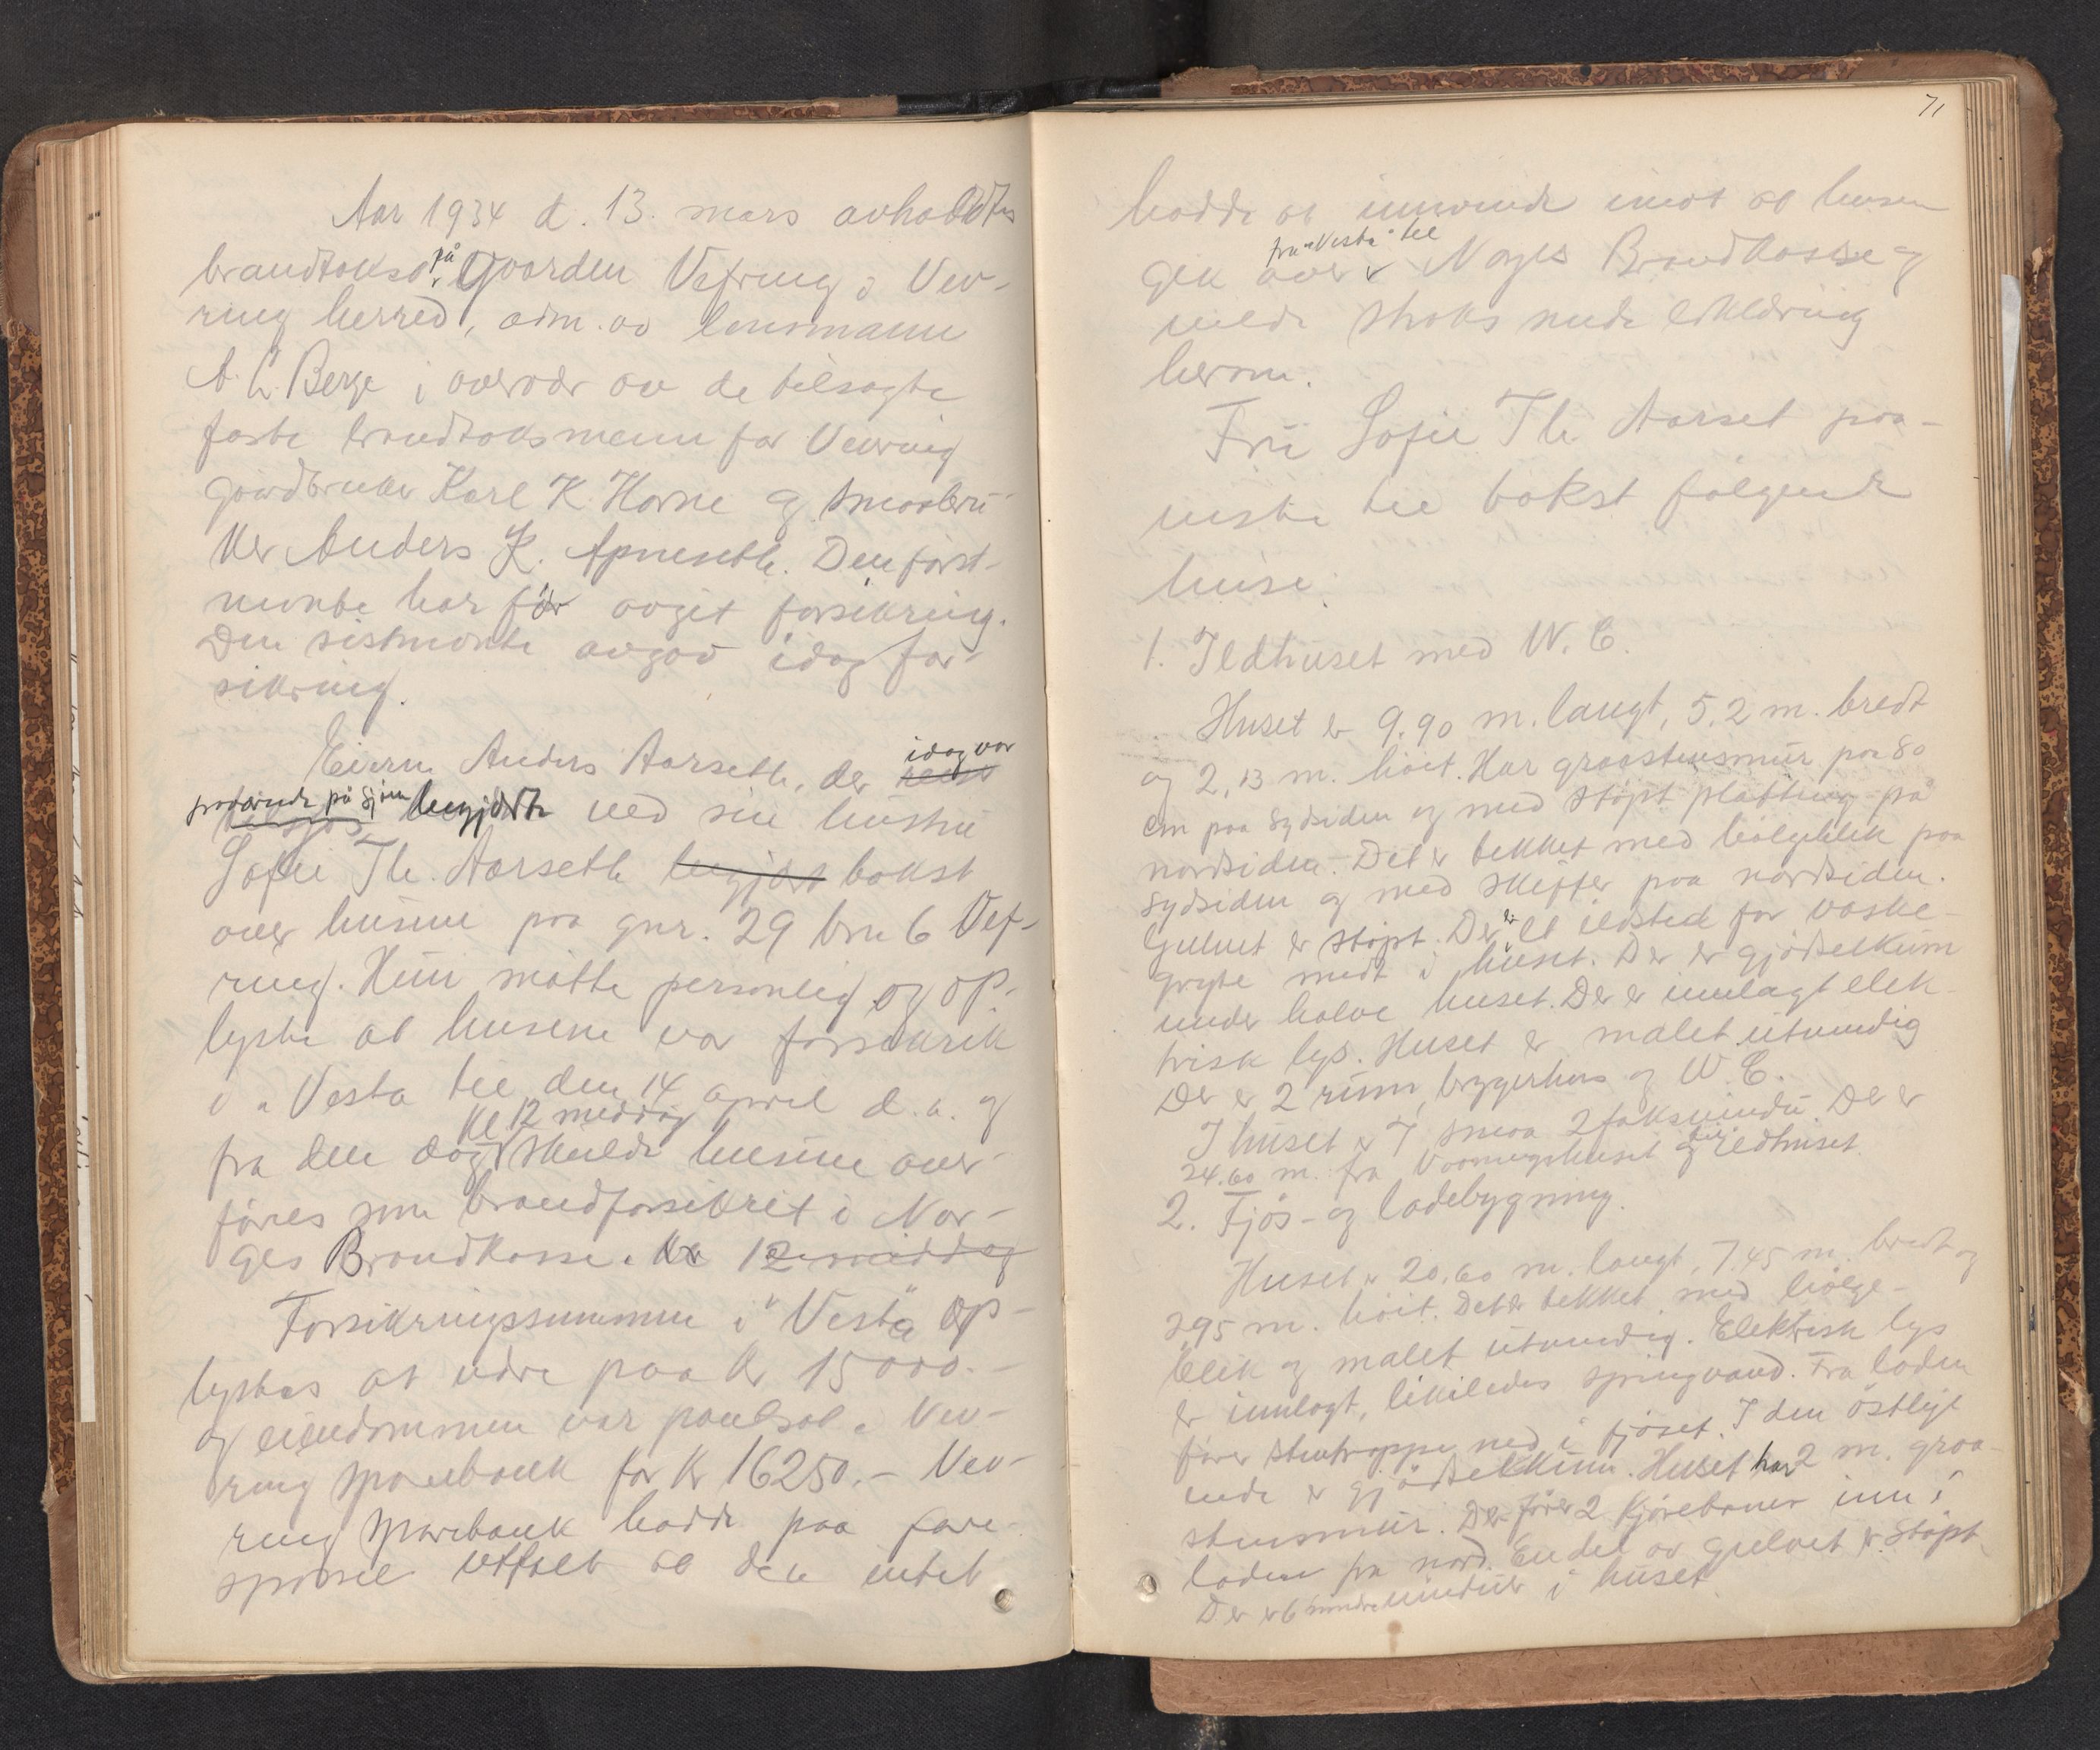 Aar 1934 d. 13. mars avholdtes
brandtakst på gaarden Vefring i Vev-
ring herred, adm. av lensmann
A. L. Berge i overvær av de tilsagte
faste brandtaksmenn for Vevring
gaardbruker Karl K. Horne og smaabru-
ker Anders K. Apneseth. Den først-
nevnte har før avgit forsikring.
Den sistnevnte avgav idag for-
sikring.
Eieren Anders Aarseth, der idag var
paa sjøen begjærte ved sin hustru
Sofie Th. Aarseth begjært takst
over husene paa gnr. 29 brn 6 Vef-
ring. Hun møtte personlig og op-
lyste at husene var forsikrik
i "Vesta til den 14 april d. a. og
fra den dag kl 12 middag skulde husene over-
føres som brandforsikret i Nor-
ges Brandkasse. kl 12 middag
Forsikringssummen i "Vesta" op-
lystes at være paa kr 15000.-
og eiendommen var pantsat i Vev-
ring sparebank for kr 16250.- Vev-
ring sparebank hadde paa fore-
spørsel uttalt at den intet
71
hadde at innvende imot at husene
gik over fra "Vesta" til Norges Brandkasse og
vilde straks sende erklæring
herom.
Fru Sofie Th. Aarset paa-
viste til takst følgende
huse:
1. Ildhuset med W. C.
Huset er 9.90 m. langt, 5.2 m. bredt
og 2,13 m. høit. Har graastensmur paa 80
cm paa sydsiden og med støpt platting på
nordsiden. Det er tekket med bølgeblik paa
sydsiden og med skifer paa nordsiden.
Gulvet er støpt. Der er et ildsted for vaske
gryte midt i huset. Der er gjødselkum
under halve huset. Der er innlagt elek-
trisk lys. Huset er malet utvendig
Der er 2 rum, bryggerhus og W. C.
I huset er 7 smaa 2 faksvindu. Der er
24.60 m. fra Vaaningshuset og til ildhuset.
2. Fjøs- og ladebygning.
Huset er 20,60 m. langt, 7.45 m. bredt og
295 m. høit. Det er tekket med bølge-
blik og malet utvendig. Elektrisk lys
er innlagt, likeledes springvand. Fra laden
fører stentrappe ned i fjøset. I den østlige
ende er gjødselkum. Huset har 2 m. graa-
stensmur. Der fører 2 kjørebaner inn i
laden fra nord. En del av gulvet er støpt.
Der er 6 mindre vinduer i huset.